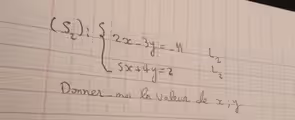 (S₂): { 2x - 3y = -11 L₁
5x + 4y = 2 L₂
Donner la valeur de x, y